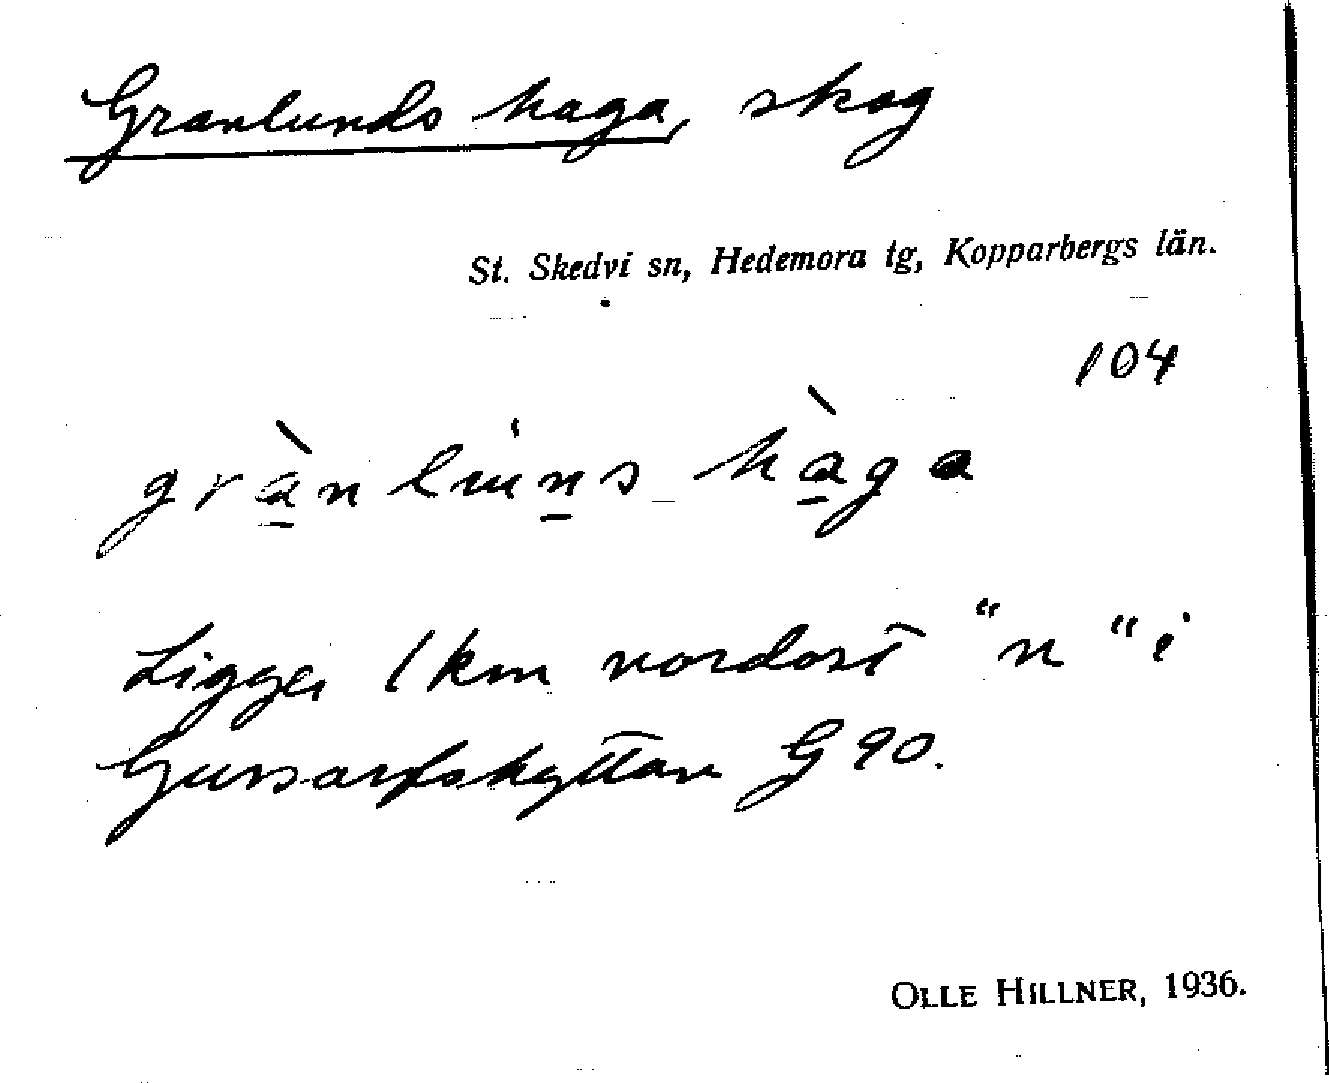 Granlunds haga, skog
St. Skedvi sn, Hedemora tg, Kopparbergs län.
104
gràn luns hàga
Ligger 1 km nordost "n" i
Gussarfshyttan G 90.
OLLE HILLNER, 1936.